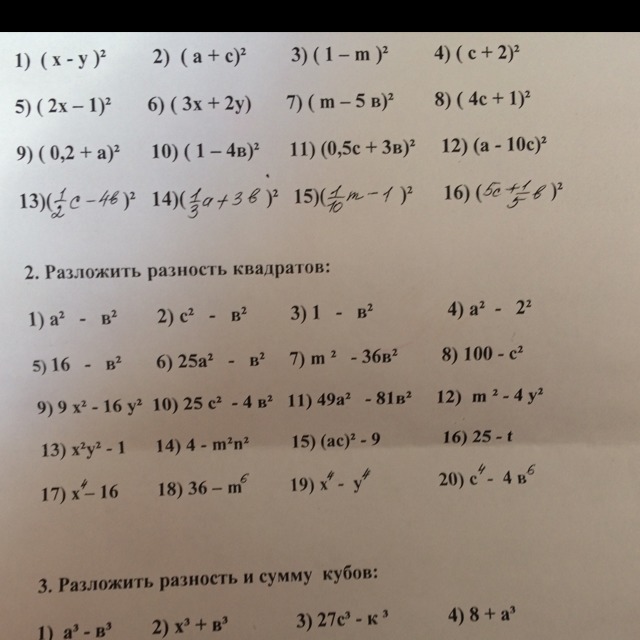 1) ( x - y )² 2) ( a + c)² 3) ( 1 – m )² 4) ( c + 2)²
5) ( 2x – 1)² 6) ( 3x + 2y) 7) ( m – 5 в)² 8) ( 4c + 1)²
9) ( 0,2 + a)² 10) ( 1 – 4в)² 11) (0,5c + 3в)² 12) (a - 10c)²
13)(1/2 c - 4в)² 14)(1/3 a + 3в)² 15)(1/10 m - 1)² 16) (5c + 1/5 в)²
2. Разложить разность квадратов:
1) a² - в² 2) c² - в² 3) 1 - в² 4) a² - 2²
5) 16 - в² 6) 25a² - в² 7) m ² - 36в² 8) 100 - c²
9) 9 x² - 16 y² 10) 25 c² - 4 в² 11) 49a² - 81в² 12) m ² - 4 y²
13) x²y² - 1 14) 4 - m²n² 15) (ac)² - 9 16) 25 - t
17) x⁴ – 16 18) 36 – m⁶ 19) x⁴ - y⁴ 20) c⁴ - 4 в⁶
3. Разложить разность и сумму кубов:
1) a³ - в³ 2) x³ + в³ 3) 27c³ - к ³ 4) 8 + a³